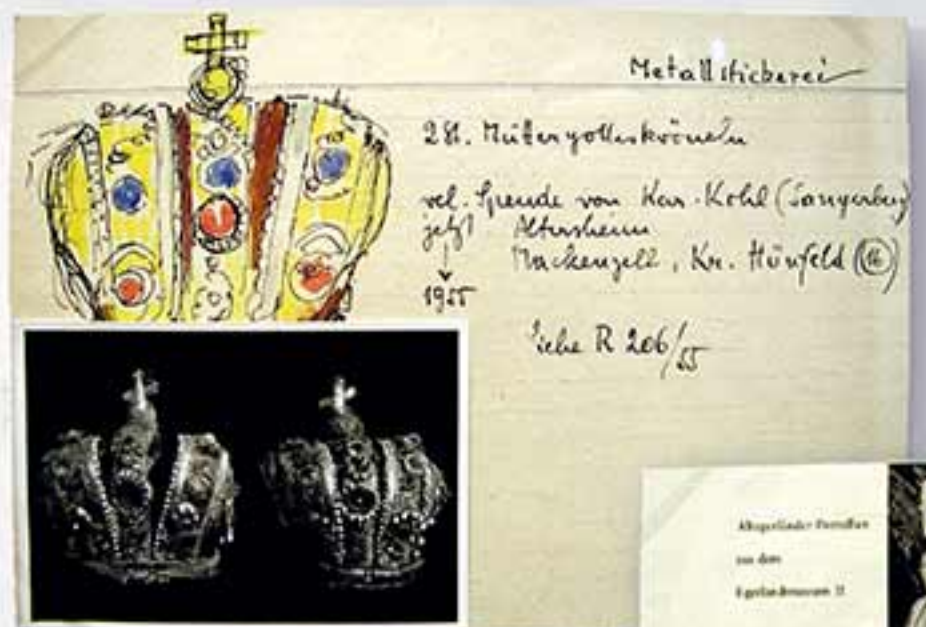 Metallstickerei
2 St. Muttergotteskröneln
vel. Spende von Kon. Kohl (Sangerberg)
jetzt Altersheim
Mackenzell, Kr. Hünfeld (16)
1955
Siehe R 206/55
Altegerländer
aus dem
Egerlandmuseum II